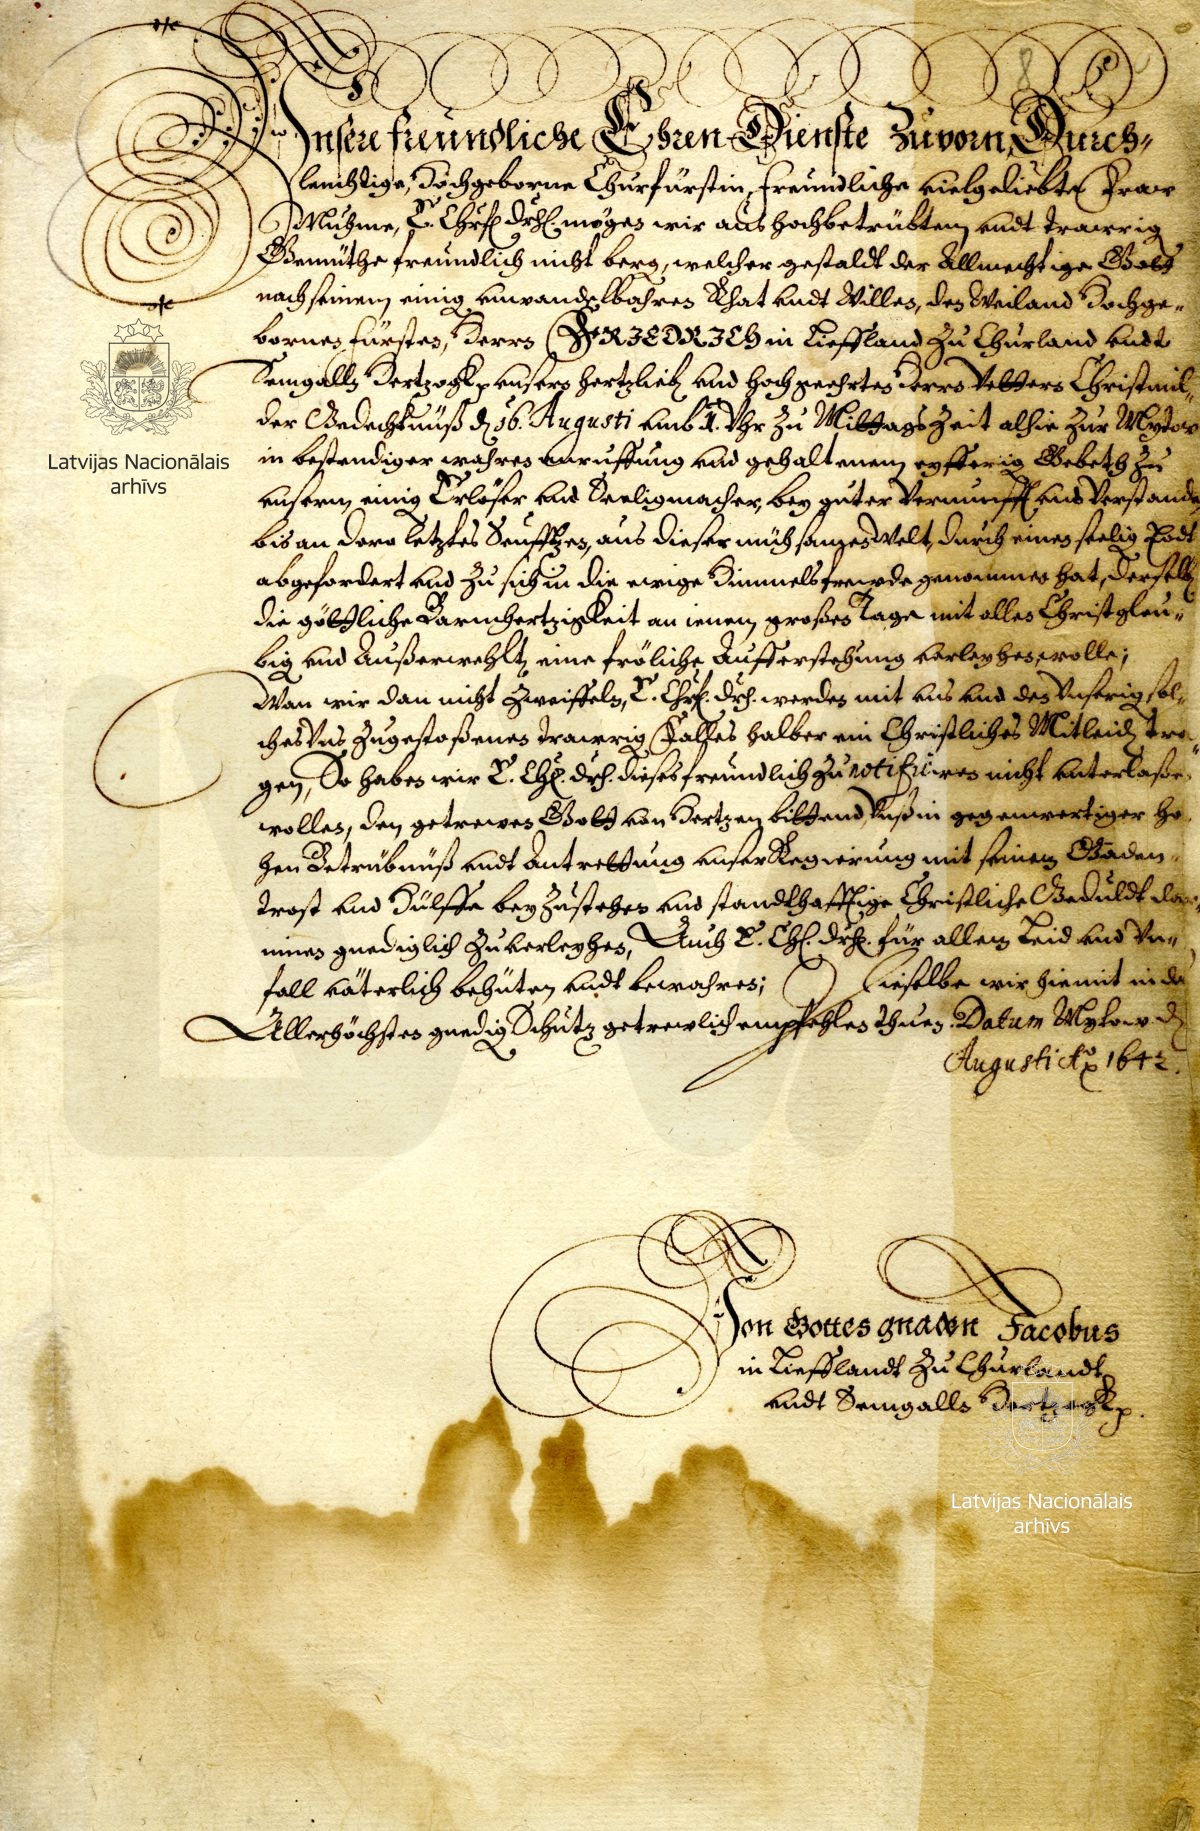 8
Unsere freundliche Ehren Dienste Zuvorn, Durch-
leuchtige, Hochgeborne Churfürstin, freundliche vielgeliebte Fraw
Muhme, E. Churf. Durchl. mögen wir aus hochbetrübtem undt trawrig
Gemüthe freundlich nicht berg, welcher gestaldt der Allmechtige Gott
nach seinem einig unwandelbahren Rhat undt Willen, den Weiland Hochge-
bornen Fürsten, Herrn FRIEDRICH in Lieffland Zu Churland undt
Semgalln Hertzogk, unsern hertzlieb und hochgeehrten Herrn Vettern Christmil-
der Gedechtnüß d. 16. Augusti umb Uhr Zu Mittags Zeit alhie Zur Mytow
in bestendiger wahren anruffung und gehaltenem eyfferig Gebeth Zu
unserm einig Erlöser und Seeligmacher, bey guter Vernunfft und Verstande
bis an dero letztes Seufftzen, aus dieser mühsamen Welt, durch einen seelig Todt
abgefordert und Zu sich in die ewige Himmelsfrewde genommen hat, derselb
die göttliche Barmhertzigkeit an jenem großen Tage mit allen Christgleu-
big und Außerwehlt eine fröliche Aufferstehung verleyhen wolle;
Wan wir dan nicht Zweiffeln, E. Churf. Durchl. werden mit uns und den Unserig sol-
ches Uns Zugestoßenen trawrig Falles halber ein Christliches Mitleid tra-
gen, So haben wir E. Churf. Durchl. dieses freundlich Zu notificiren nicht unterlaßen
wollen, den getrewen Gott von Hertzen bittend, Uns in gegenwertiger ho-
hen Betrübnüß undt Antrettung unser Regierung mit seinem Gnaden-
trost und Hülffe bey Zustehen und standthafftige Christliche Geduldt da-
innen gnediglich Zu verleyhen, Auch E. Churf. Durchl. für allem Leid und Un-
fall väterlich behüten undt bewahren; Dieselbe wir hiemit in des
Allerhöchsten gnedig Schutz getrewlich empfehlen thuen. Datum Mytow d.
Augusti Ao 1642.
Von Gottes gnaden Jacobus
in Liefflandt Zu Churlandt
undt Semgalln Hertzogk.
Latvijas Nacionālais
arhīvs
Latvijas Nacionālais
arhīvs